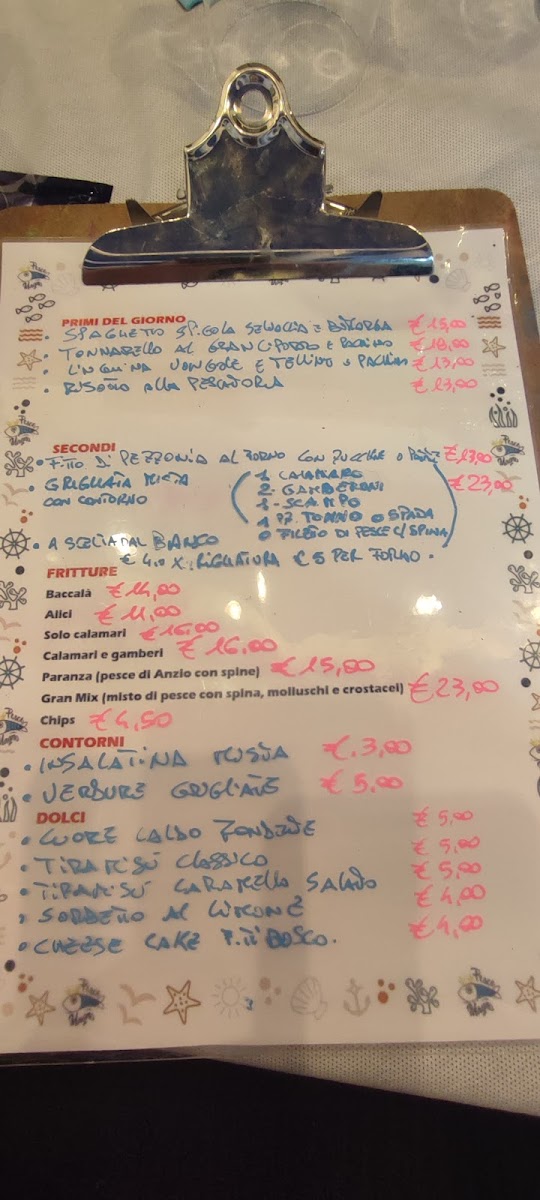 PRIMI DEL GIORNO
• SPAGHETTO SPIGOLA SELVAGGIA E BOTTARGA € 15,00
• TONNARELLO AL GRANCIPORRO E PACHINO € 18,00
• LINGUINA VONGOLE E TELLINE E PACHINO € 13,00
• RISOTTO ALLA PESCATORA € 13,00
SECONDI
• FILETTO DI PEZZOGNA AL FORNO CON ZUCCHINE O € 13,00
• GRIGLIATA MISTA € 23,00
CON CONTORNO
1 CALAMARO
2 GAMBERONI
1 SCAMPO
1 PZ. TONNO O SPADA
O FILETTO DI PESCE C/ SPINA
• A SCELTA DAL BANCO
€ 4,0 X GRIGLIATURA € 5 PER FORNO.
FRITTURE
Baccalà € 14,00
Alici € 11,00
Solo calamari € 16,00
Calamari e gamberi € 16,00
Paranza (pesce di Anzio con spine) € 15,00
Gran Mix (misto di pesce con spina, molluschi e crostacei) € 23,00
Chips € 4,50
CONTORNI
• INSALATINA MISTA €.3,00
• VERDURE GRIGLIATE € 5,00
DOLCI
• CUORE CALDO FONDENTE € 5,00
• TIRAMISÚ CLASSICO € 5,00
• TIRAMISÚ CARAMELLO SALATO € 5,00
• SORBETTO AL LIMONE € 4,00
• CHEESE CAKE F.TTI BOSCO. € 4,00